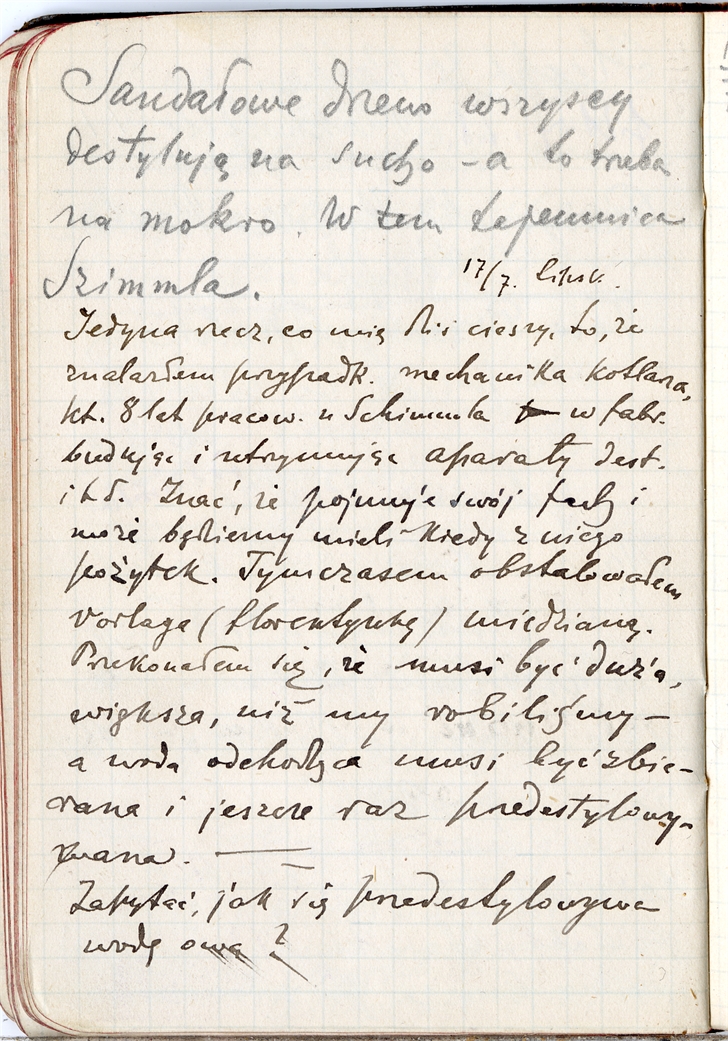 Sandałowe drzewo wszyscy
destylują na sucho – a to trzeba
na mokro. W tem tajemnica
Szimmla.
17/7. Lipsk.
Jedyna rzecz, co mię dziś cieszy, to, że
znalazłem przypadk. mechanika kotlarza,
kt. 8 lat pracow. u Schimmla w fabr.
budując i utrzymując aparaty dest.
i t d. Znać, że pojmuje swój fach i
może będziemy mieli kiedy z niego
pożytek. Tymczasem obstalowałem
vorlagę (florentynkę) miedzianą.
Przekonałem się, że musi być duża,
większa, niż my robiliśmy –
a woda odchodząca musi być zbie-
rana i jeszcze raz przedestylowy-
wana. —
Zapytać, jak się przedestylowywa
wodę ową ?